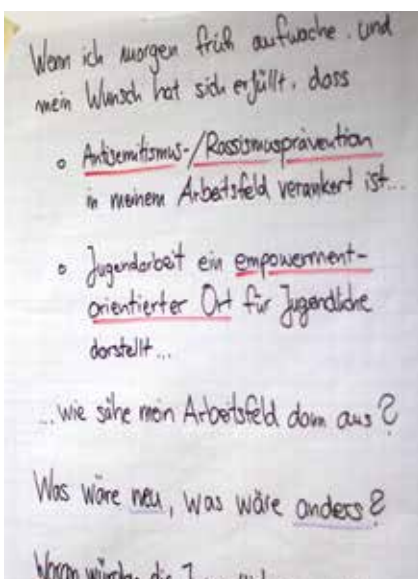 Wenn ich morgen früh aufwache und
mein Wunsch hat sich erfüllt, dass
o Antisemitismus-/Rassismusprävention
in meinem Arbeitsfeld verankert ist...
o Jugendarbeit ein empowerment-
orientierter Ort für Jugendliche
darstellt...
...wie sähe mein Arbeitsfeld dann aus?
Was wäre neu, was wäre anders?
die